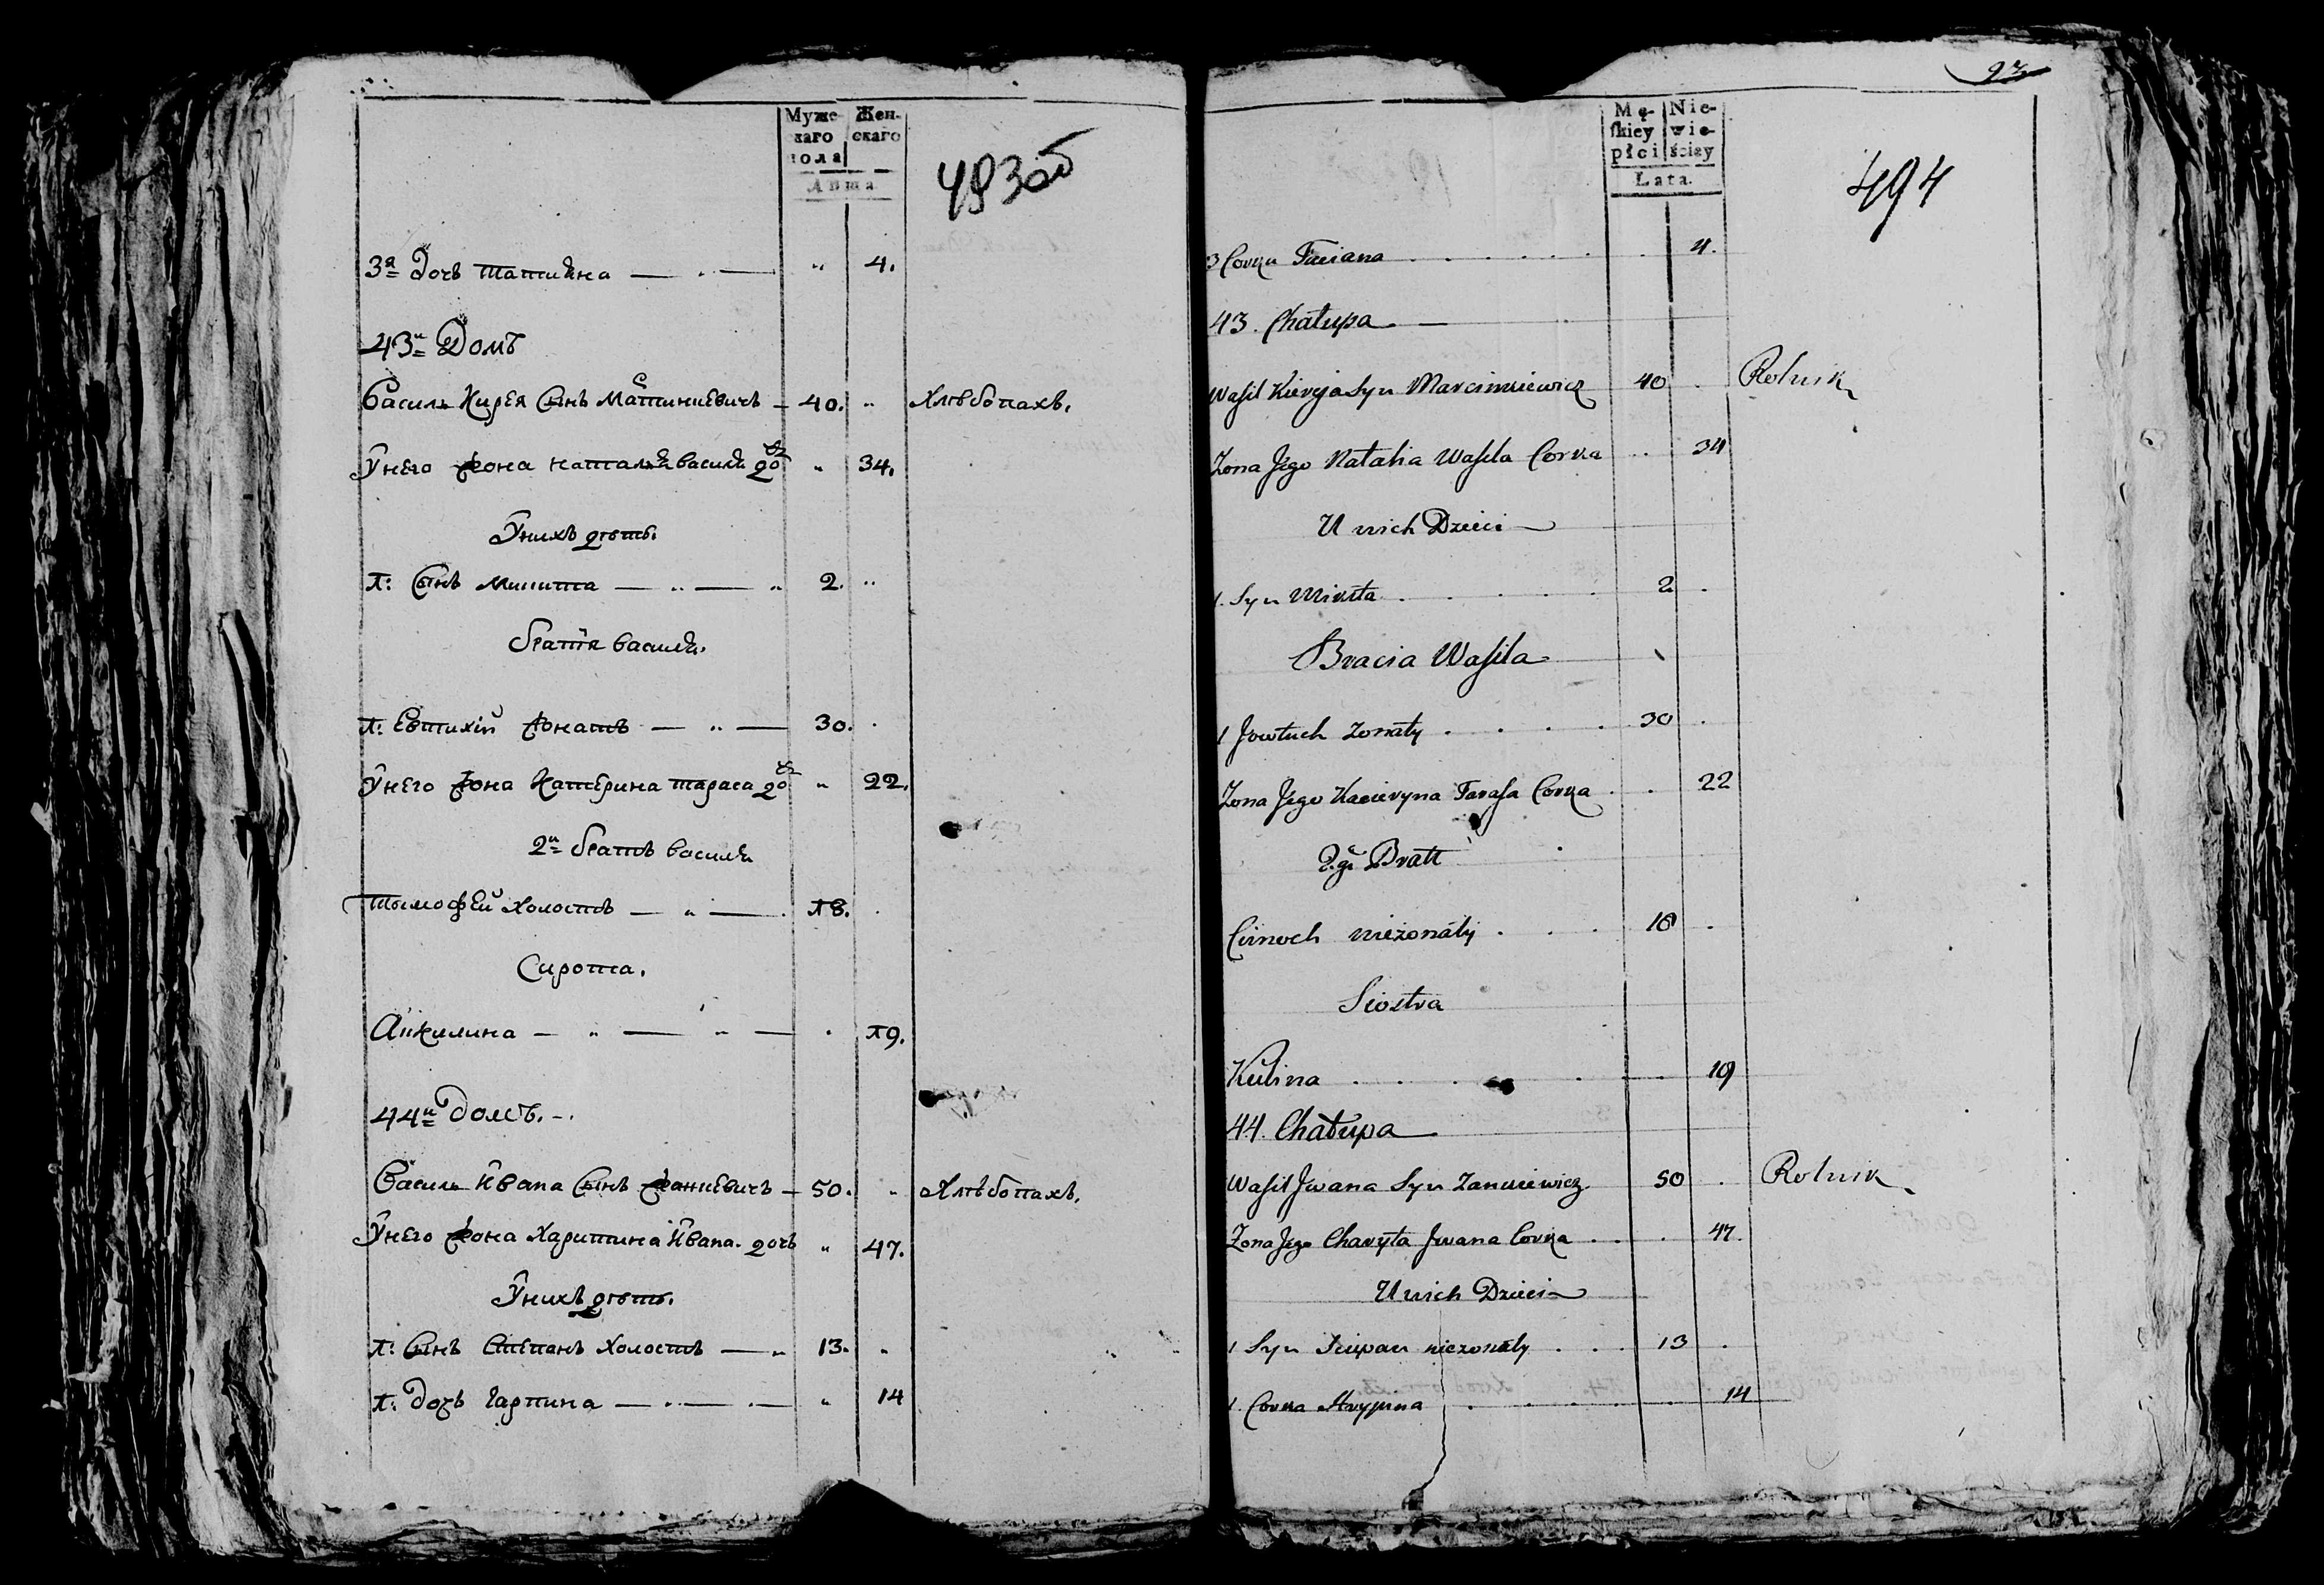 Муже-
скаго
пола
Жен-
скаго
Лѣта
493об
3я дочь Татияна — " — " 4.
43й Домъ
Василь Кирея Сынъ Матиниевичъ — 40. " Хлѣбопахъ.
Унего жона Наталия Василя дочь " 34.
Унихъ дѣти.
1: Сынъ Микита — " — " 2. "
братия Василя.
1: Евтихій жонатъ — " — 30.
Унего жона Катерина Тараса дочь " 22.
2й братъ Василя
Тимофей холостъ — " — 18.
Сирота.
Анкилина — " — " — 19.
44й домъ. -.
Василь Ивана Сынъ Жанкевичъ — 50. " Хлѣбопахъ.
Унего жона Харитина Ивана дочь " 47.
Унихъ дѣти.
1: Сынъ Степанъ холостъ — " 13. "
1: дочь Гарпина — " — " 14
Mę-
skiey
płci
Nie-
wie-
ściey
Lata.
494
3 Corka Taciana 4.
43. Chałupa
Wasil Kireja Syn Marcinkiewicz 40 Rolnik
Zona Jego Natalia Wasila Corka 34
U nich Dzieci
1. Syn Mikita 2
Bracia Wasila
1 Jowtuch Zonaty 30
Zona Jego Kacieryna Tarasa Corka 22
2.gi Bratt
Cimoch nieżonaty 18
Siostra
Kulina 19
44. Chałupa
Wasil Jwana Syn Zankiewicz 50 Rolnik
Zona Jego Charyta Jwana Corka 47.
U nich Dzieci
1 Syn Sciepan niezonaty 13
1. Corka Arypina 14